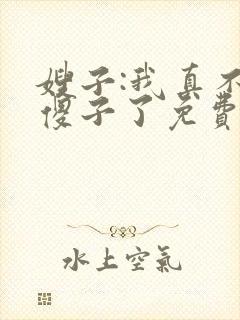 嫂子:我真不
傻子了免费
水上空氣